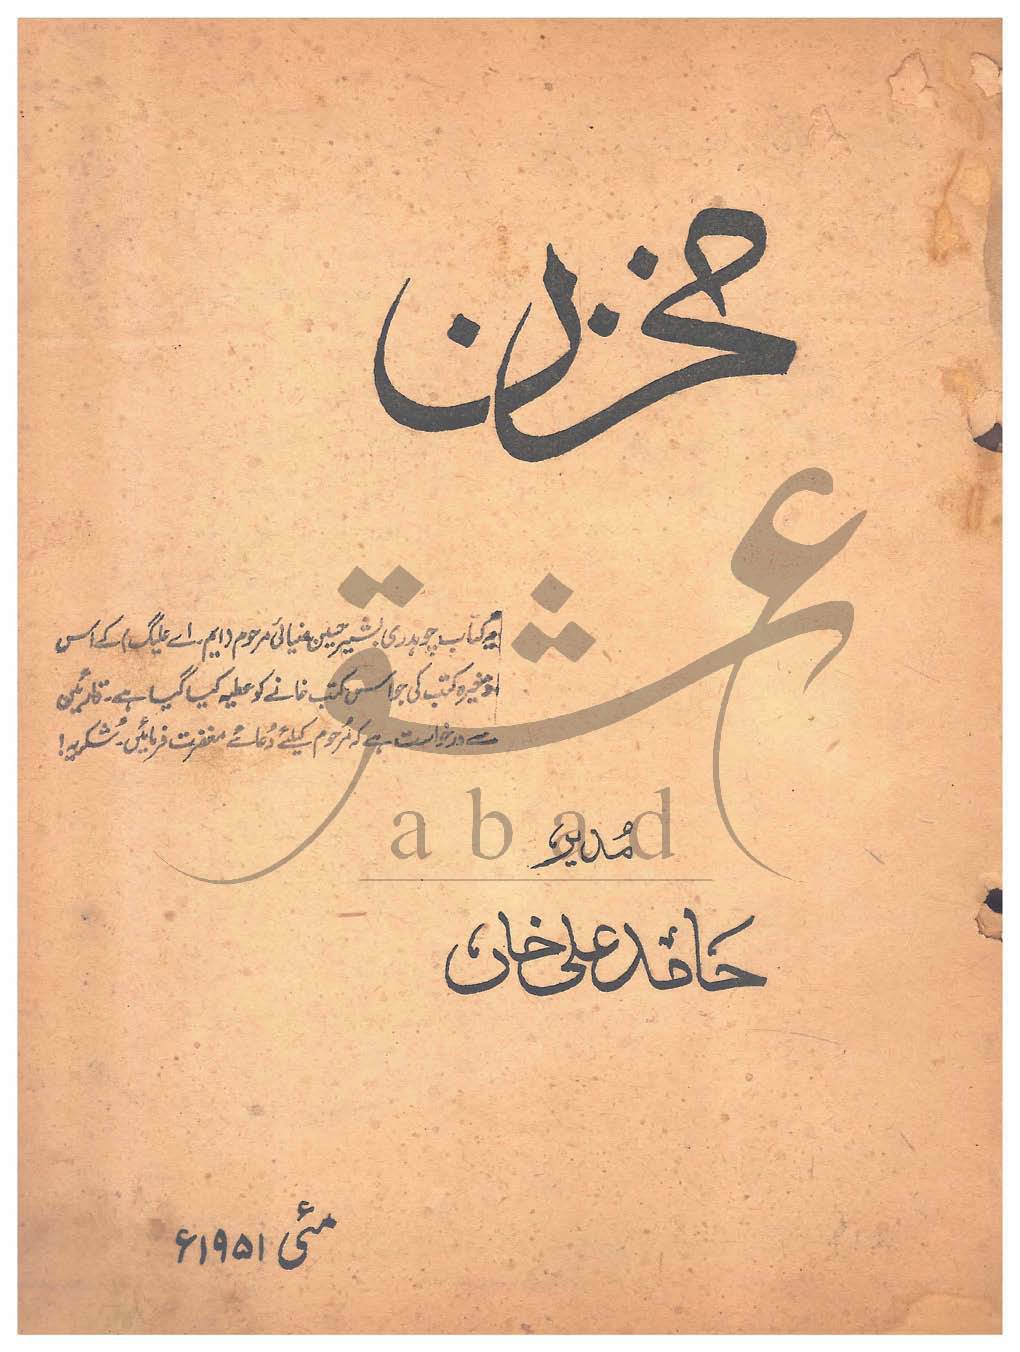 مخزن
عشق
یہ کتاب چوہدری بشیر حسین ضیائی مرحوم (ایم۔ اے علیگ) کے اس
ذخیرہ کتب کی جو اس کتب خانے کو عطیہ کیا گیا ہے۔ قارئین
سے درخواست ہے کہ مرحوم کیلئے دُعائے مغفرت فرمائیں۔ شکریہ!
abad
مُدیر
حامد علی خاں
مئی ۱۹۵۱ء